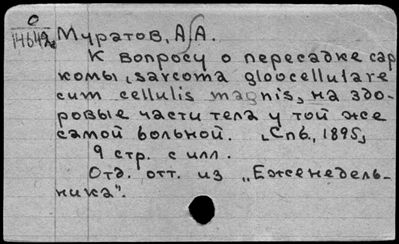 0
14649а
Муратов, А. А.
К вопросу о пересадке сар
комы „sarcoma gloocellulare
cum cellulis magnis„ на здо-
ровые части тела у той же
самой больной. „Спб, 1895„
9 стр. с илл.
Отд. отт. из „Еженедель-
ника".